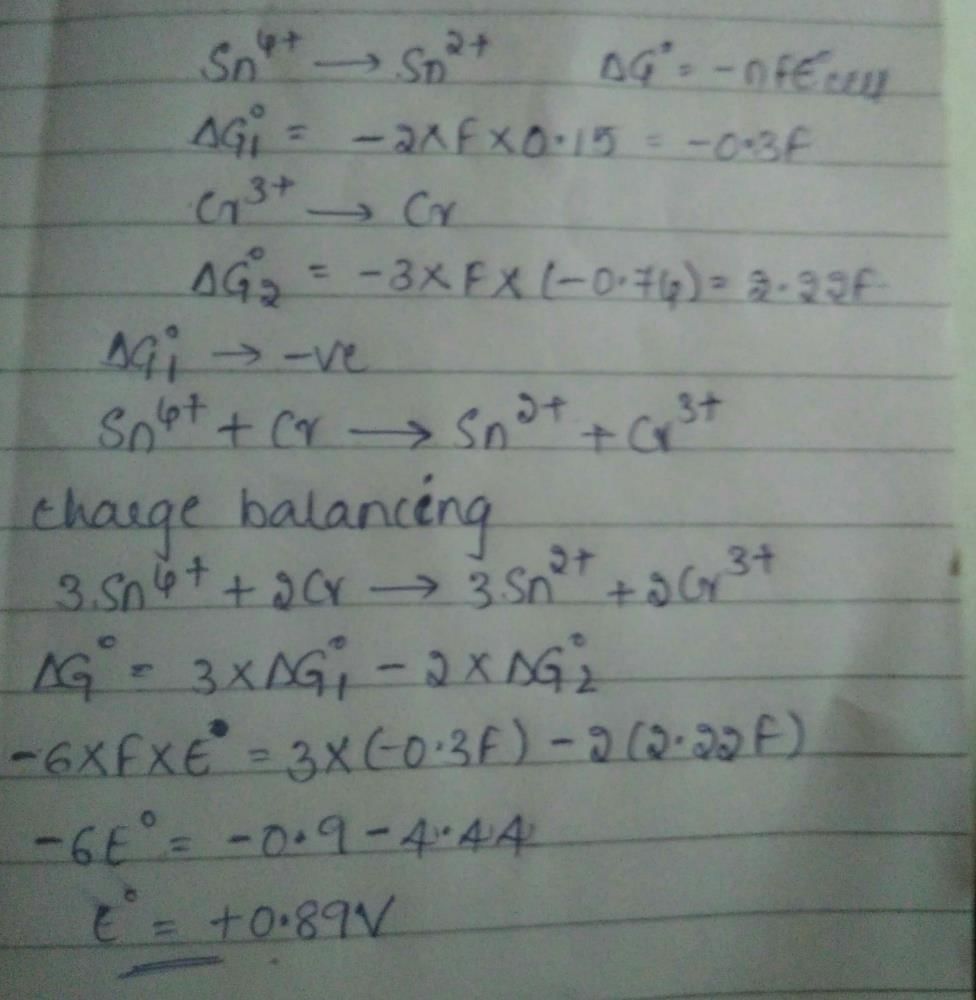 Sn⁴⁺ → Sn²⁺ ΔG° = -nFEcell
ΔG₁° = -2×F×0.15 = -0.3F
Cr³⁺ → Cr
ΔG₂° = -3×F×(-0.74) = 2.22F
ΔG₁° → -ve
Sn⁴⁺ + Cr → Sn²⁺ + Cr³⁺
charge balancing
3Sn⁴⁺ + 2Cr → 3Sn²⁺ + 2Cr³⁺
ΔG° = 3×ΔG₁° - 2×ΔG₂°
-6×F×E° = 3×(-0.3F) - 2(2.22F)
-6E° = -0.9 - 4.44
E° = +0.89V